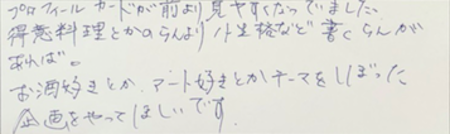 プロフィールカードが前より見やすくなってでました。
得意料理とかのらんより、性格など書くらんが
あれば。
お酒好きとか、アート好きとかテーマをしぼった
企画をやってほしいです。